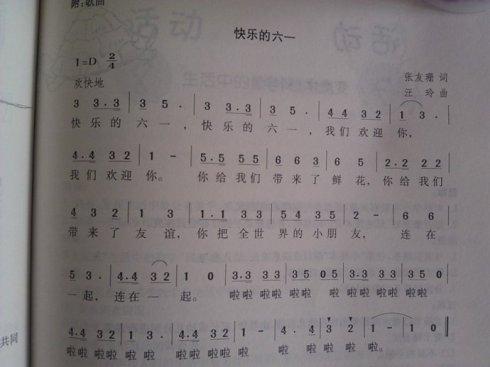 附:歌曲
快乐的六一
1=D 2/4
欢快地
张友珊 词
汪 玲 曲
3 3.3 3 5 . 3 3.3 3 5 . 4 4 3 2 1 3 .
快乐 的 六 一 , 快 乐 的 六 一 , 我 们 欢 迎 你,
4.4 3 2 1 - 5.5 5 5 6 6 3 6 5 2.2 2 2
我 们 欢 迎 你。 你 给 我 们 带 来 了 鲜 花, 你 给 我 们
4 3 2 1 3 1.1 3 3 5 4 3 5 2 - 6 6
带 来 了 友 谊, 你 把 全 世 界 的 小 朋 友, 连 在
5 3 . 4.4 3 2 1 0 3.3 3 3 3 5 0 5 3.3 3 3 3 5 0
一 起, 连 在 一 起。 啦啦 啦啦 啦啦 啦 啦啦 啦啦 啦啦
4.4 3 2 1 3 . 4.4 3 2 1 - 4 . 4 3 2 1 - 1 0
啦啦 啦啦 啦 啦 啦啦 啦啦 啦 啦 啦 啦 啦 啦。
共同